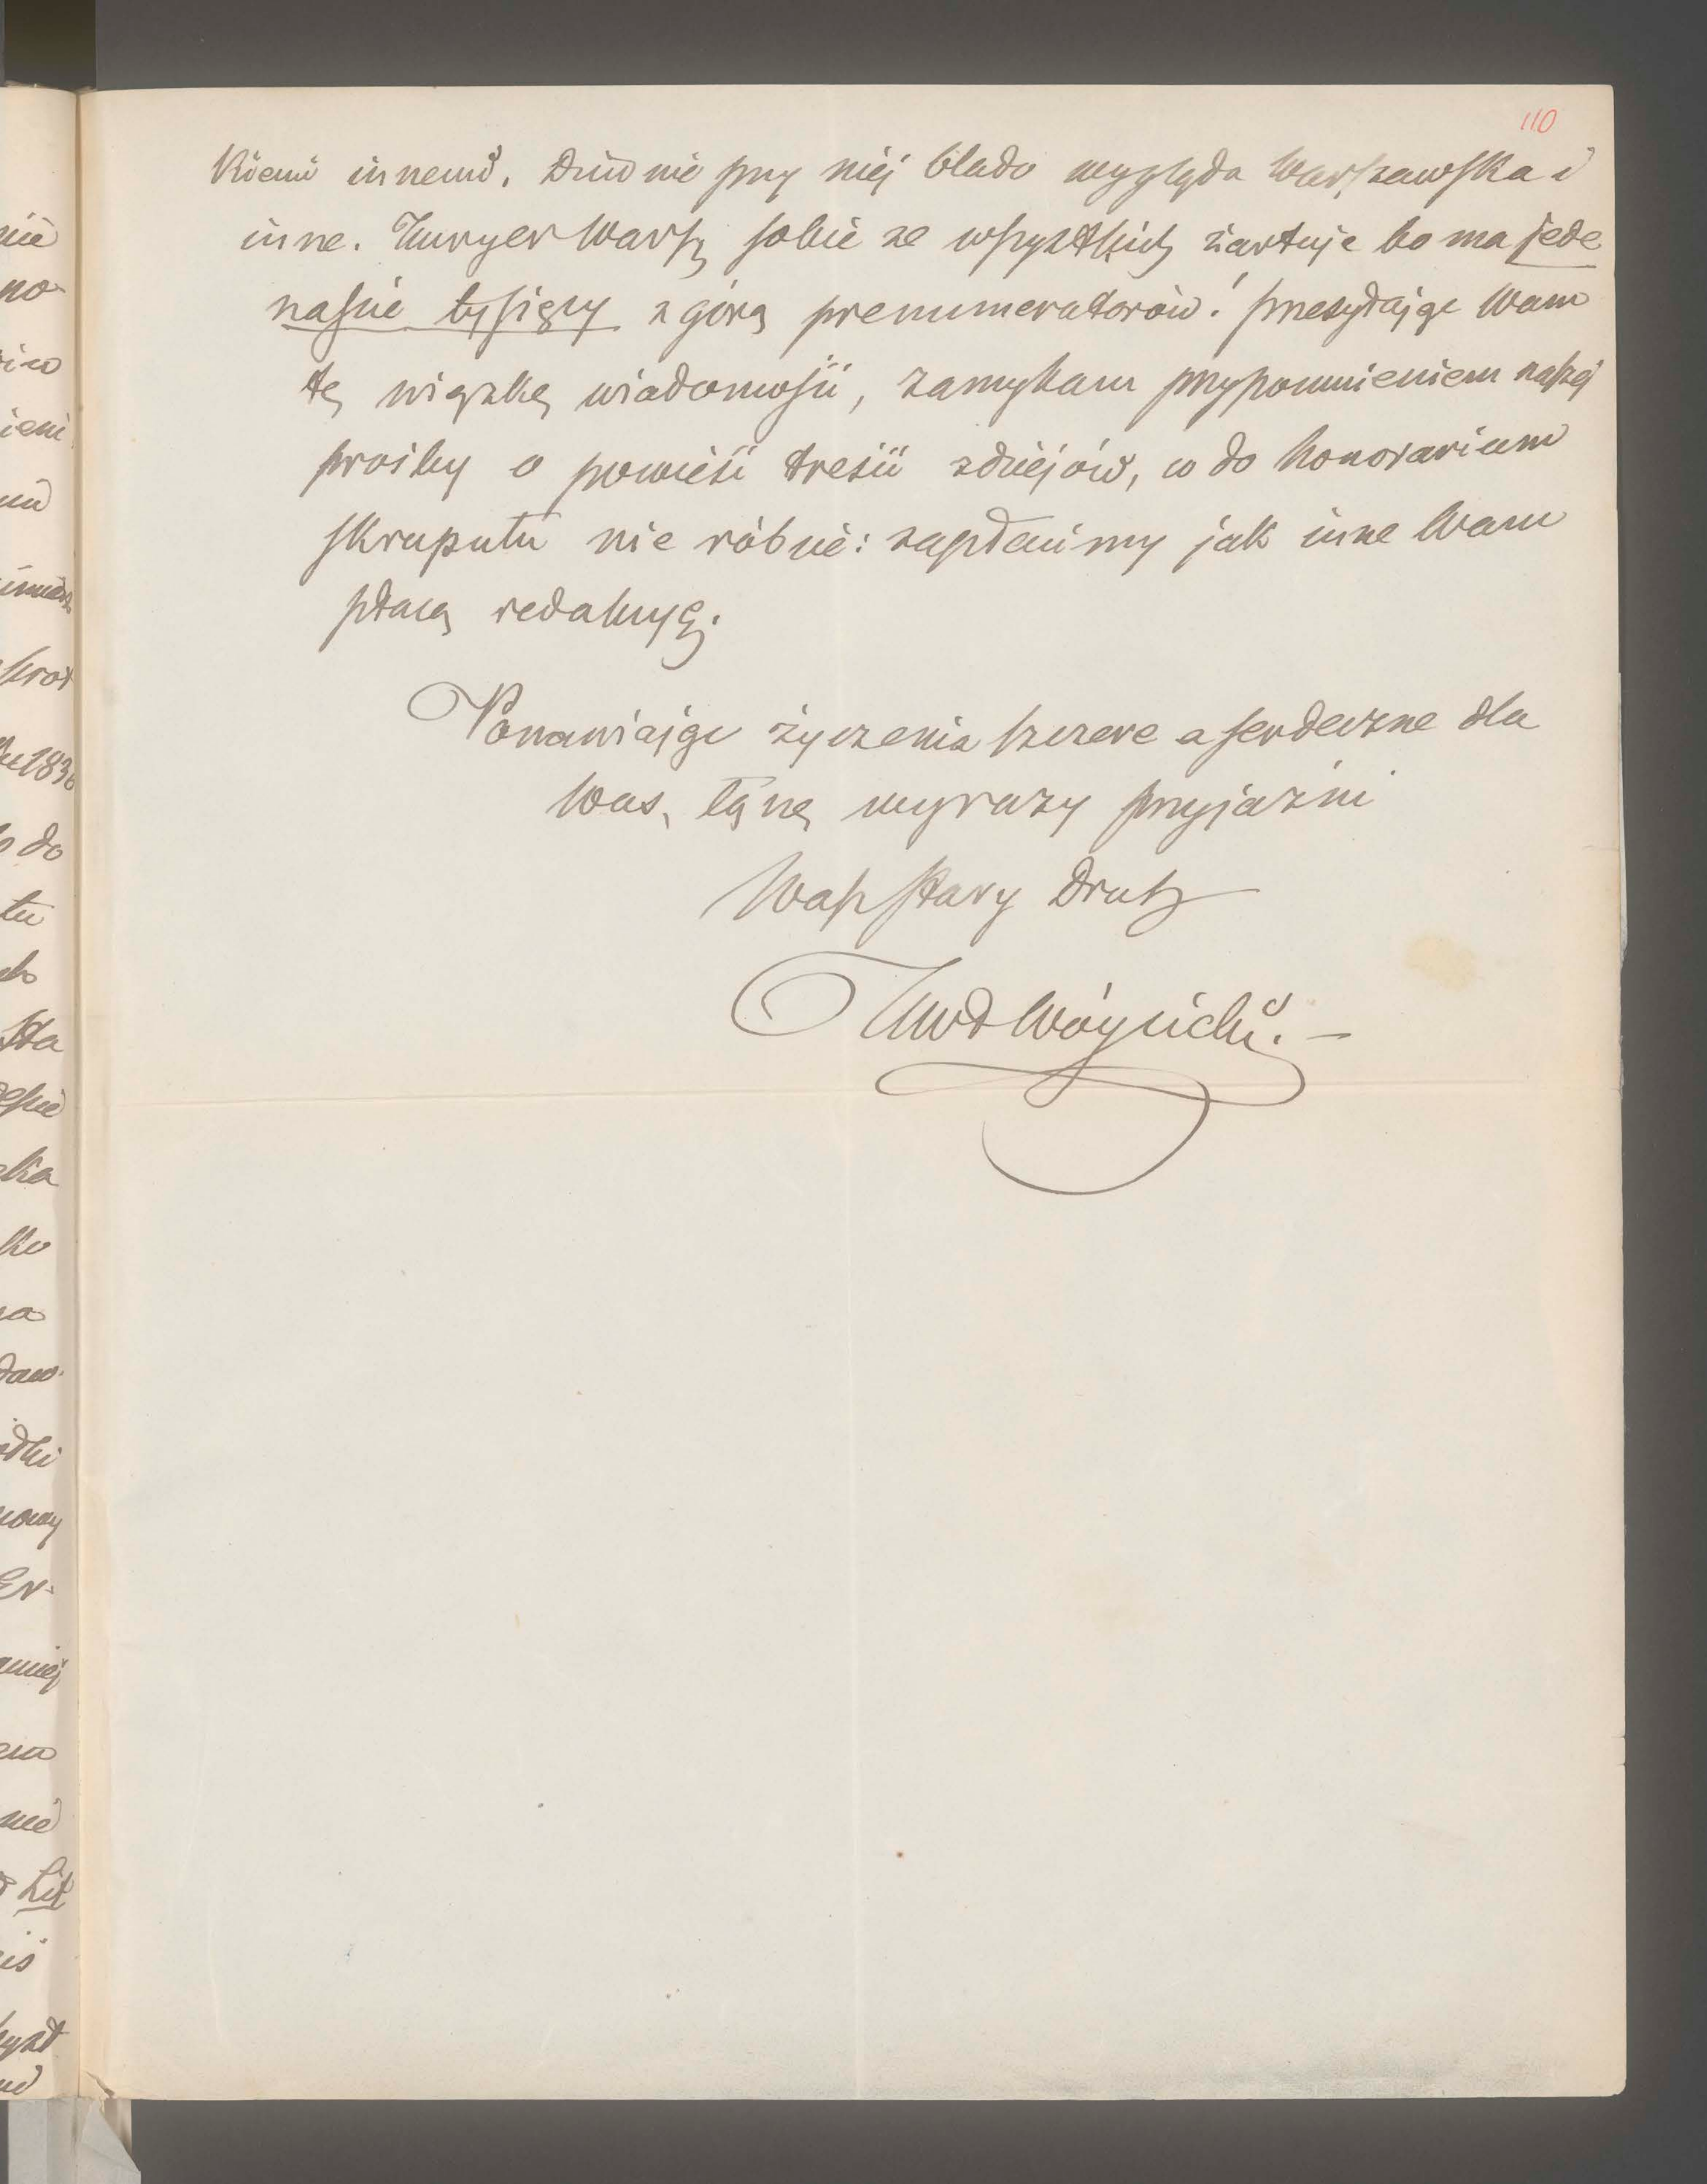 110
kiemi innemi. Dziwnie przy niej blado wygląda Warszawska i
inne. Kuryer Warsz sobie ze wszystkich żartuje bo ma jede
naście tysięcy z górą prenumeratorów! Przesyłając Wam
tę wiązkę wiadomości, zamykam przypomnieniem naszej
prośby o powieść treści z dziejów, co do honorarium
skrupułu nie róbcie: zapłacimy jak inne Wam
płacą redakcye.
Ponawiając życzenia szczere a serdeczne dla
Was, łączę wyrazy przyjaźni
Wasz stary druh
KWł Wóycicki. —